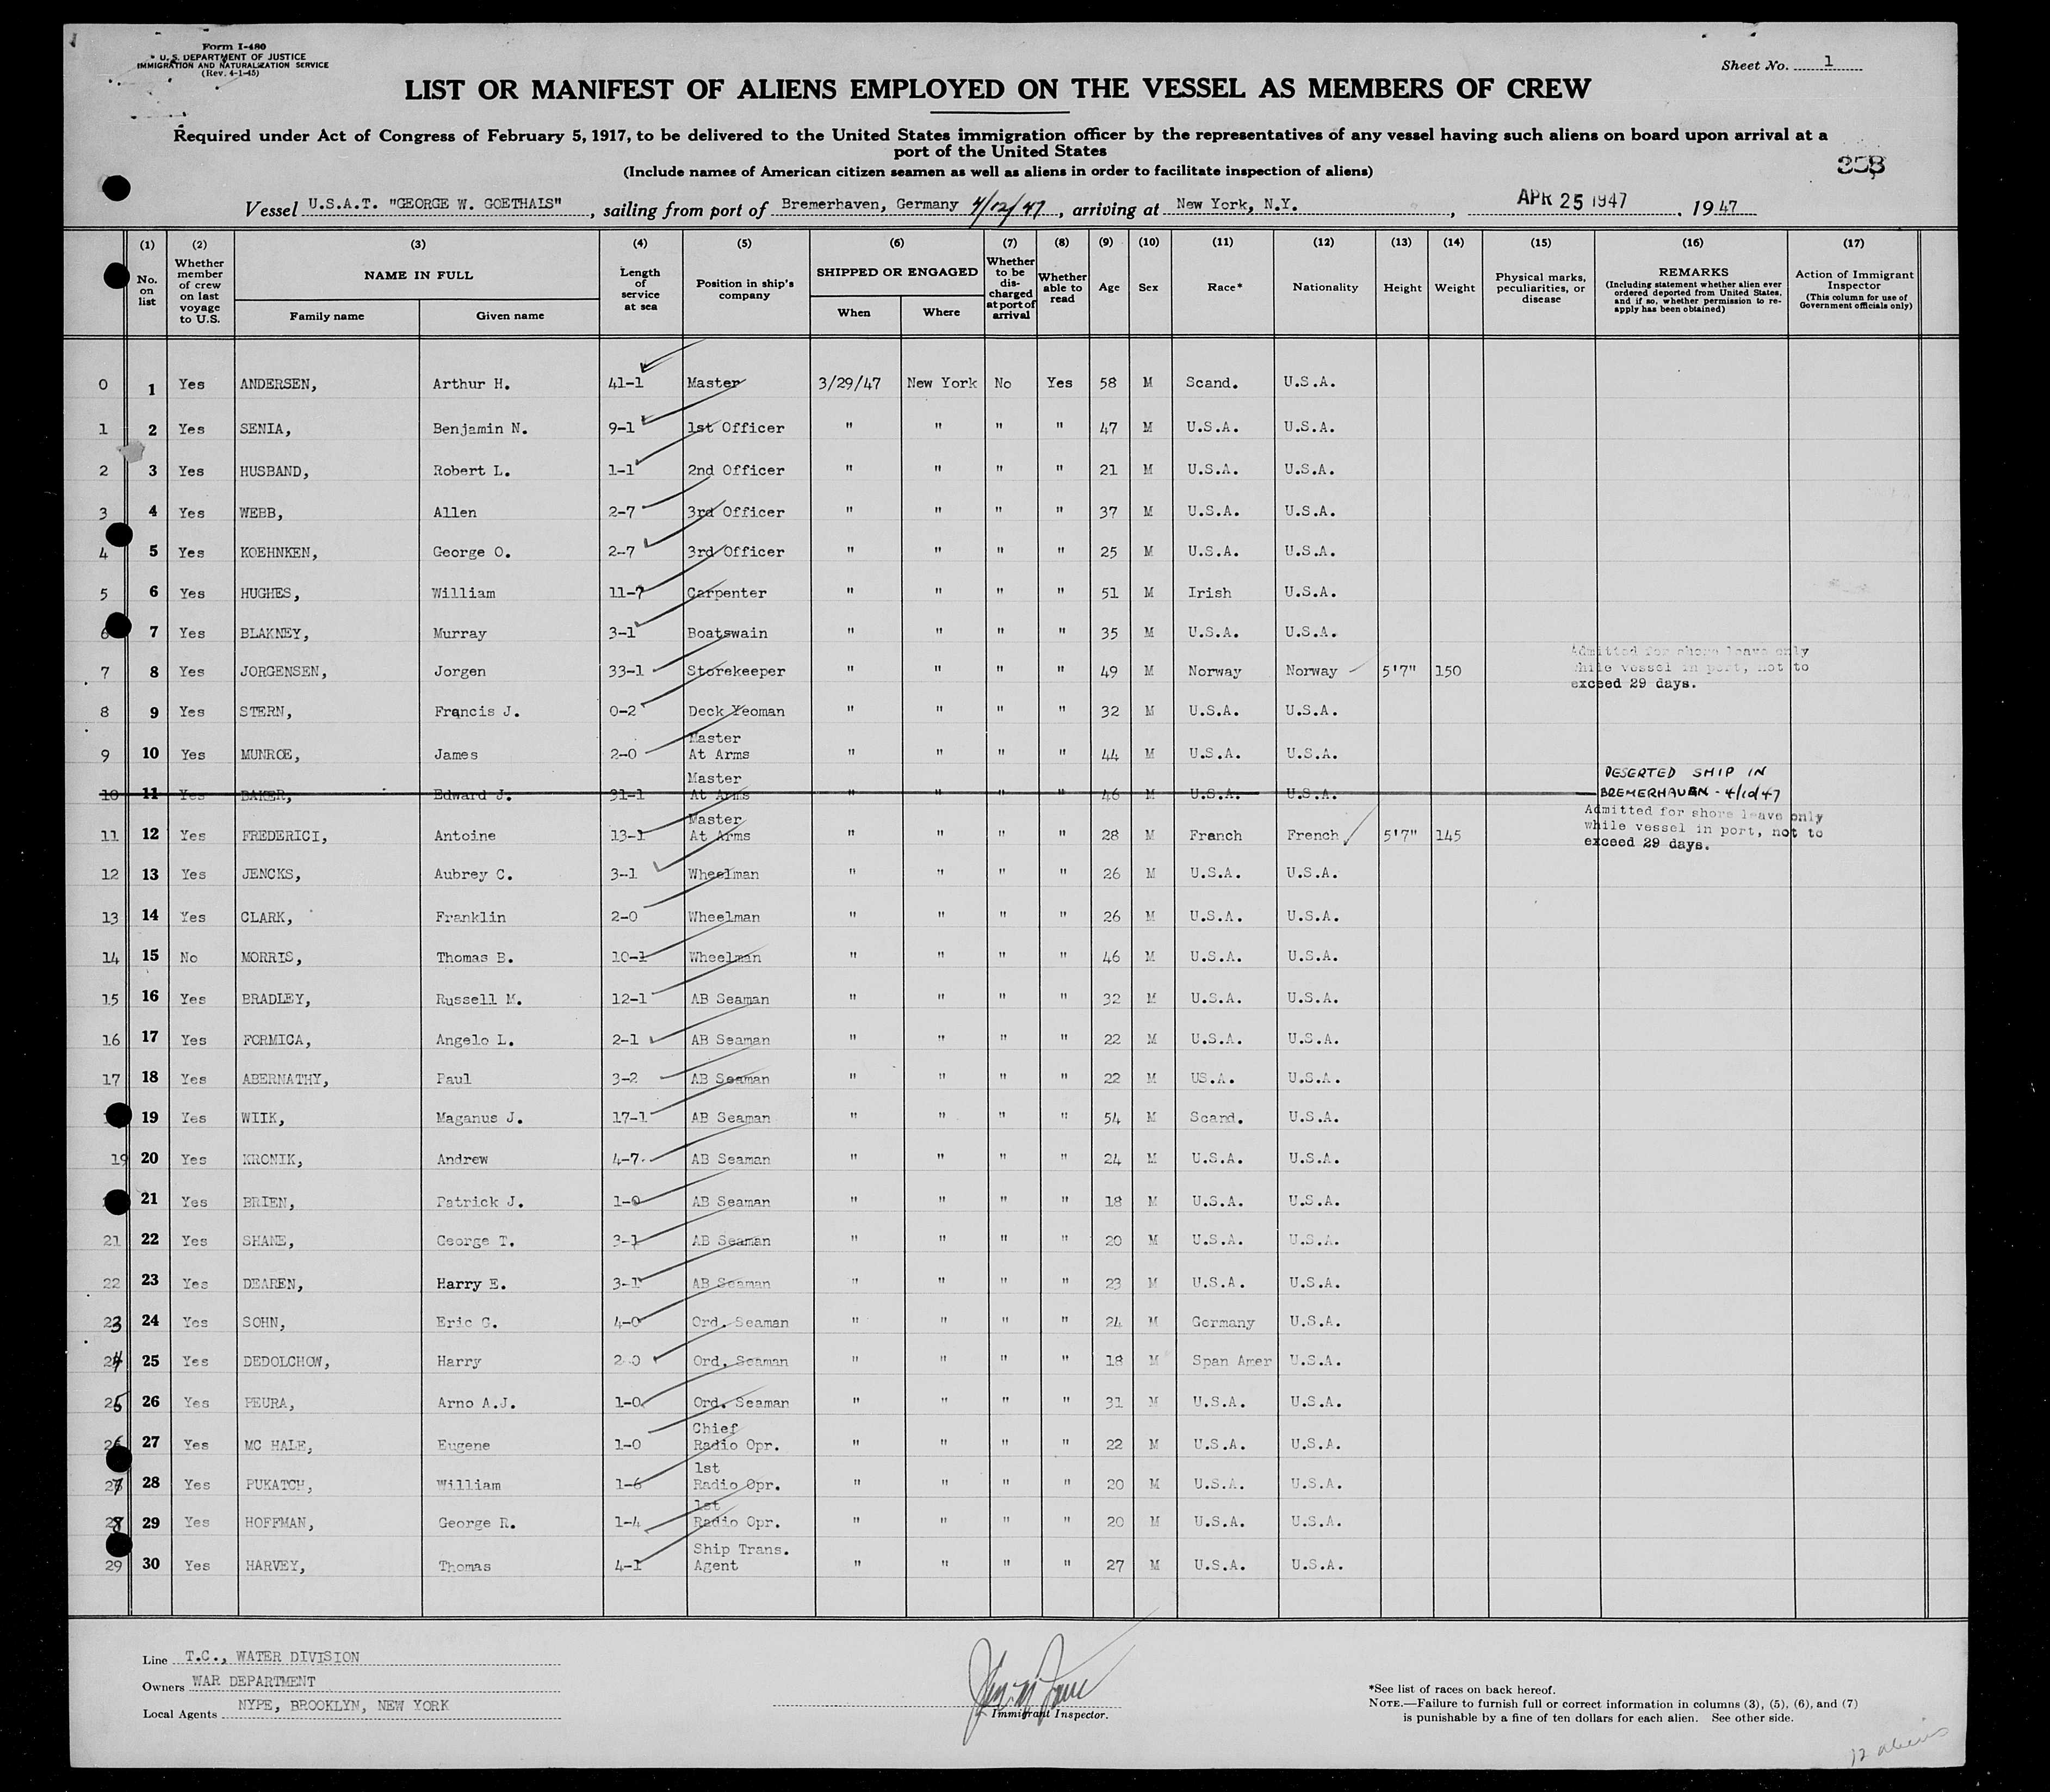 Form I-480
U. S. DEPARTMENT OF JUSTICE
IMMIGRATION AND NATURALIZATION SERVICE
(Rev. 4-1-45)
Sheet No. 1
LIST OR MANIFEST OF ALIENS EMPLOYED ON THE VESSEL AS MEMBERS OF CREW
Required under Act of Congress of February 5, 1917, to be delivered to the United States immigration officer by the representatives of any vessel having such aliens on board upon arrival at a
port of the United States
(Include names of American citizen seamen as well as aliens in order to facilitate inspection of aliens)
358
Vessel U.S.A.T. "GEORGE W. GOETHALS", sailing from port of Bremerhaven, Germany 4/12/47, arriving at New York, N.Y., APR 25 1947, 1947
(1) No. on list (2) Whether member of crew on last voyage to U.S. (3) NAME IN FULL Family name Given name (4) Length of service at sea (5) Position in ship's company (6) SHIPPED OR ENGAGED When Where (7) Whether to be discharged at port of arrival (8) Whether able to read (9) Age (10) Sex (11) Race* (12) Nationality (13) Height (14) Weight (15) Physical marks, peculiarities, or disease (16) REMARKS (Including statement whether alien ever ordered deported from United States, and if so, whether permission to re-apply has been obtained) (17) Action of Immigrant Inspector (This column for use of Government officials only)
0 1 Yes ANDERSEN, Arthur H. 41-1 Master 3/29/47 New York No Yes 58 M Scand. U.S.A.
1 2 Yes SENIA, Benjamin N. 9-1 1st Officer " " " " 47 M U.S.A. U.S.A.
2 3 Yes HUSBAND, Robert L. 1-1 2nd Officer " " " " 21 M U.S.A. U.S.A.
3 4 Yes WEBB, Allen 2-7 3rd Officer " " " " 37 M U.S.A. U.S.A.
4 5 Yes KOEHNKEN, George O. 2-7 3rd Officer " " " " 25 M U.S.A. U.S.A.
5 6 Yes HUGHES, William 11-7 Carpenter " " " " 51 M Irish U.S.A.
6 7 Yes BLAKNEY, Murray 3-1 Boatswain " " " " 35 M U.S.A. U.S.A.
7 8 Yes JORGENSEN, Jorgen 33-1 Storekeeper " " " " 49 M Norway Norway 5'7" 150 Admitted for shore leave only while vessel in port, not to exceed 29 days.
8 9 Yes STERN, Francis J. 0-2 Deck Yeoman " " " " 32 M U.S.A. U.S.A.
9 10 Yes MUNROE, James 2-0 Master At Arms " " " " 44 M U.S.A. U.S.A.
10 11 Yes BAKER, Edward J. 31-1 Master At Arms " " " " 46 M U.S.A. U.S.A. DESERTED SHIP IN BREMERHAVEN - 4/10/47
11 12 Yes FREDERICI, Antoine 13-1 Master At Arms " " " " 28 M Franch French 5'7" 145 Admitted for shore leave only while vessel in port, not to exceed 29 days.
12 13 Yes JENCKS, Aubrey C. 3-1 Wheelman " " " " 26 M U.S.A. U.S.A.
13 14 Yes CLARK, Franklin 2-0 Wheelman " " " " 26 M U.S.A. U.S.A.
14 15 No MORRIS, Thomas B. 10-1 Wheelman " " " " 46 M U.S.A. U.S.A.
15 16 Yes BRADLEY, Russell M. 12-1 AB Seaman " " " " 32 M U.S.A. U.S.A.
16 17 Yes FORMICA, Angelo L. 2-1 AB Seaman " " " " 22 M U.S.A. U.S.A.
17 18 Yes ABERNATHY, Paul 3-2 AB Seaman " " " " 22 M US.A. U.S.A.
19 Yes WIIK, Maganus J. 17-1 AB Seaman " " " " 54 M Scand. U.S.A.
19 20 Yes KRONIK, Andrew 4-7 AB Seaman " " " " 24 M U.S.A. U.S.A.
21 Yes BRIEN, Patrick J. 1-0 AB Seaman " " " " 18 M U.S.A. U.S.A.
21 22 Yes SHANE, George T. 3-1 AB Seaman " " " " 20 M U.S.A. U.S.A.
22 23 Yes DEAREN, Harry E. 3-1 AB Seaman " " " " 23 M U.S.A. U.S.A.
23 24 Yes SOHN, Eric G. 4-0 Ord. Seaman " " " " 24 M Germany U.S.A.
24 25 Yes DEDOLCHOW, Harry 2-0 Ord. Seaman " " " " 18 M Span Amer U.S.A.
25 26 Yes PEURA, Arno A.J. 1-0 Ord. Seaman " " " " 31 M U.S.A. U.S.A.
26 27 Yes MC HALE, Eugene 1-0 Chief Radio Opr. " " " " 22 M U.S.A. U.S.A.
27 28 Yes PUKATCH, William 1-6 1st Radio Opr. " " " " 20 M U.S.A. U.S.A.
28 29 Yes HOFFMAN, George R. 1-4 1st Radio Opr. " " " " 20 M U.S.A. U.S.A.
29 30 Yes HARVEY, Thomas 4-1 Ship Trans. Agent " " " " 27 M U.S.A. U.S.A.
Line T.C., WATER DIVISION
Owners WAR DEPARTMENT
Local Agents NYPE, BROOKLYN, NEW YORK
Immigrant Inspector.
*See list of races on back hereof.
NOTE.—Failure to furnish full or correct information in columns (3), (5), (6), and (7)
is punishable by a fine of ten dollars for each alien. See other side.
12 aliens